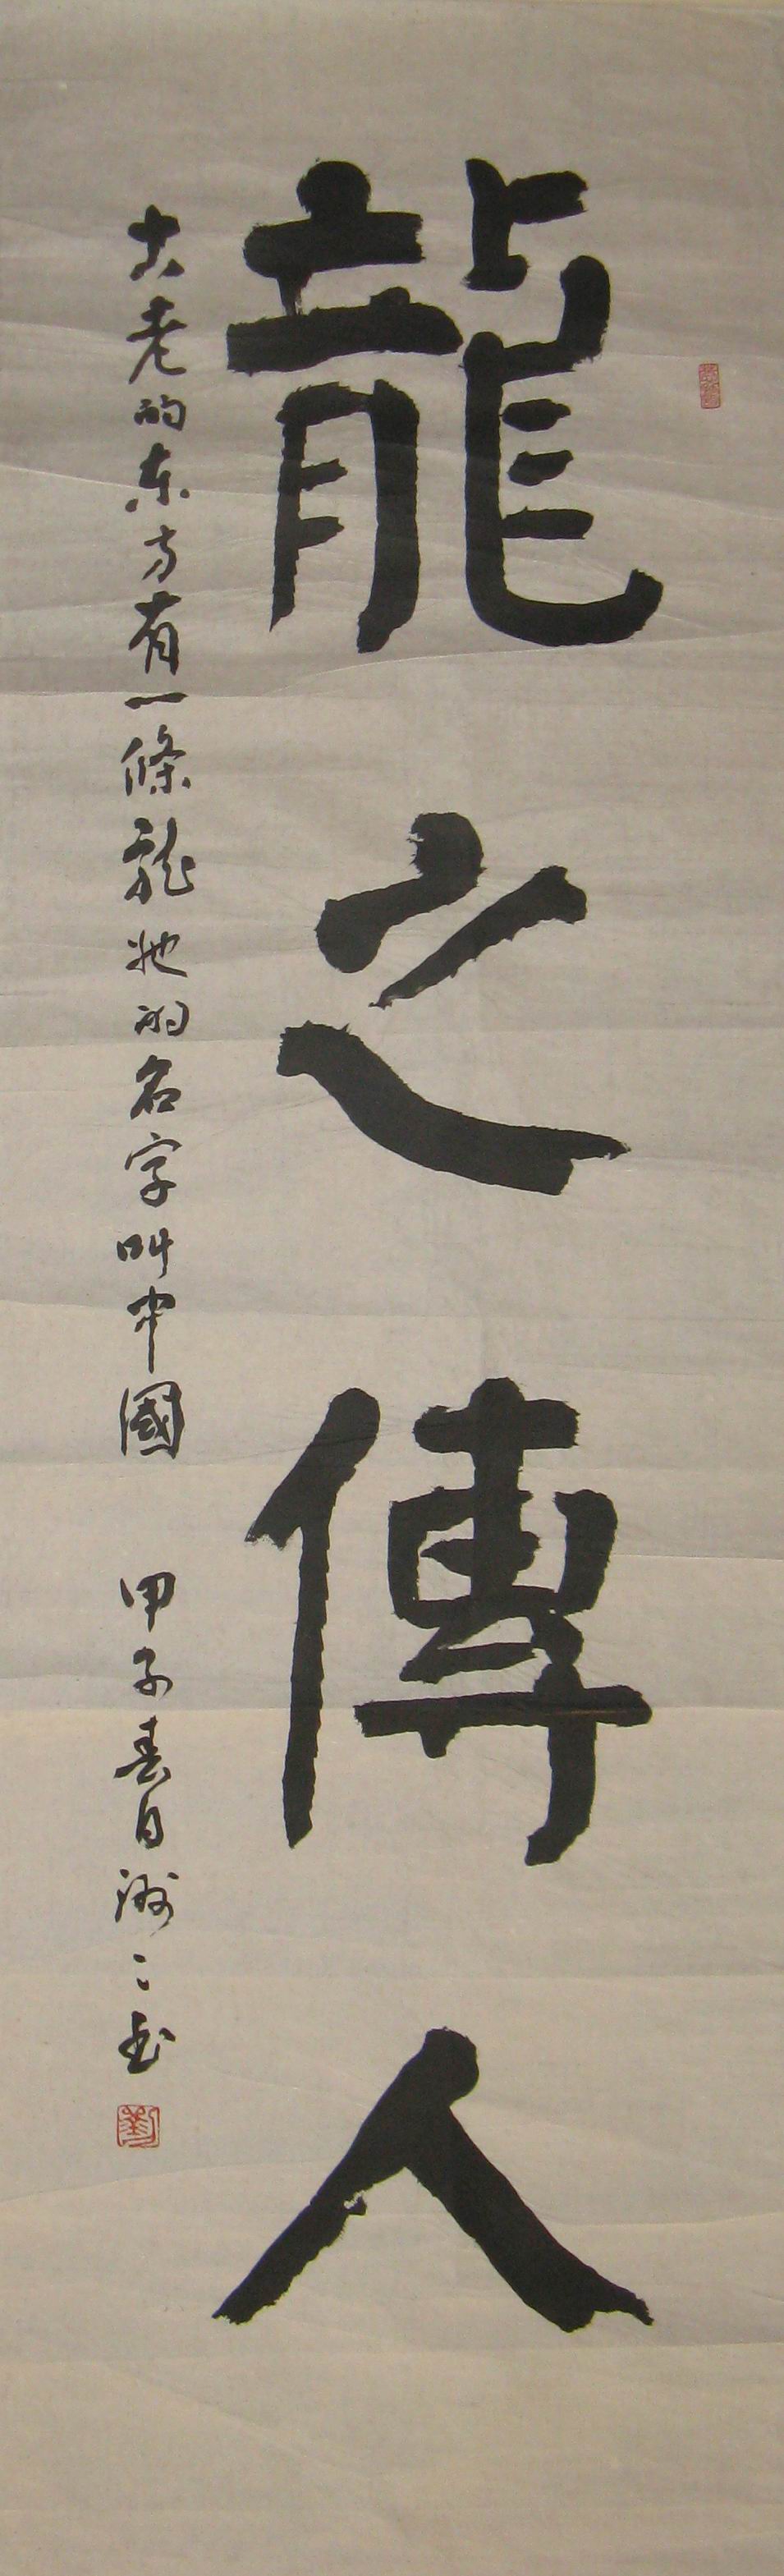 龍之傳人
古老的东方有一條龍她的名字叫中國 甲子春日